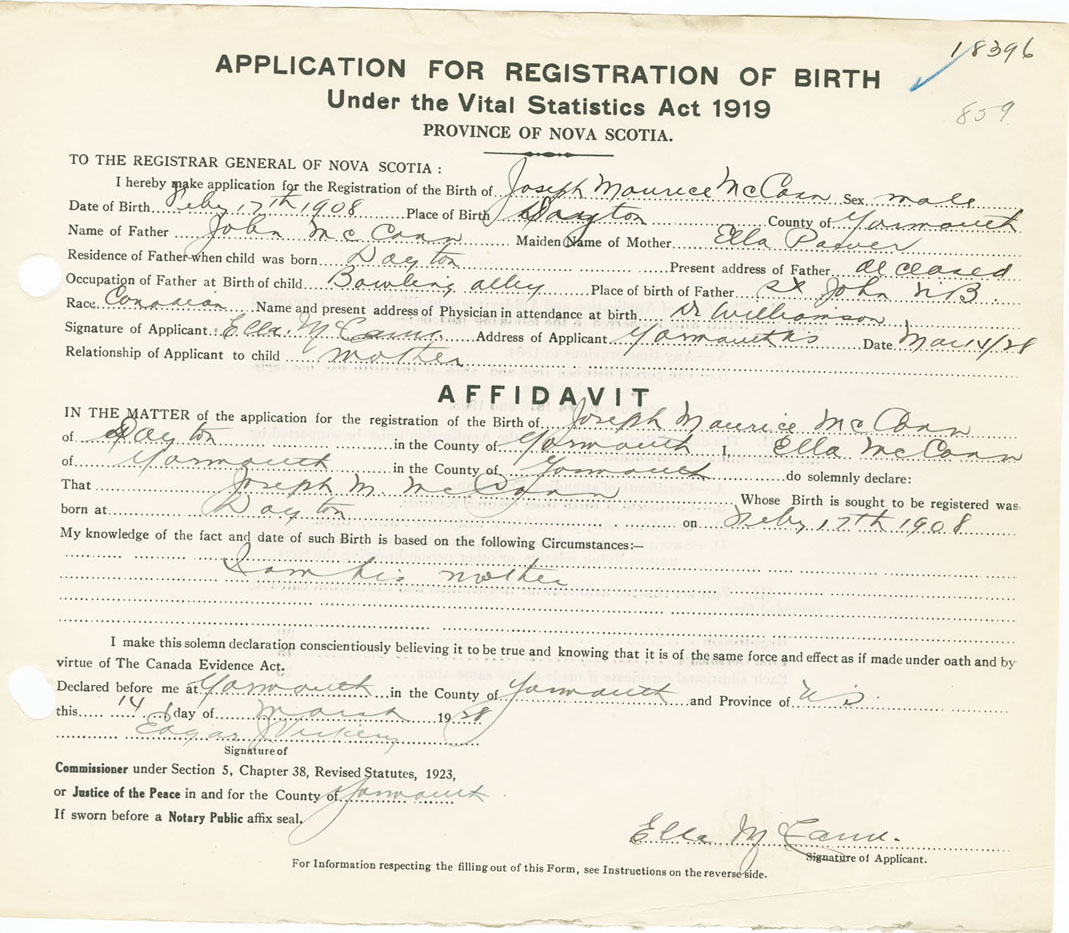 18396
APPLICATION FOR REGISTRATION OF BIRTH
859
Under the Vital Statistics Act 1919
PROVINCE OF NOVA SCOTIA.
TO THE REGISTRAR GENERAL OF NOVA SCOTIA :
I hereby make application for the Registration of the Birth of Joseph Maurice McCann Sex male
Date of Birth Feby 17th 1908 Place of Birth Dayton County of Yarmouth
Name of Father John McCann Maiden Name of Mother Ella
Residence of Father when child was born Dayton Present address of Father deceased
Occupation of Father at Birth of child Bowling alley Place of birth of Father St John N.B.
Race Canadian Name and present address of Physician in attendance at birth Dr Williamson
Signature of Applicant: Ella McCann. Address of Applicant Yarmouth Date Mar 14/28
Relationship of Applicant to child mother
AFFIDAVIT
IN THE MATTER of the application for the registration of the Birth of Joseph Maurice McCann
of Dayton in the County of Yarmouth I, Ella McCann
of Yarmouth in the County of Yarmouth do solemnly declare:
That Joseph M. McCann Whose Birth is sought to be registered was
born at Dayton on Feby 17th 1908
My knowledge of the fact and date of such Birth is based on the following Circumstances:—
I am his mother
I make this solemn declaration conscientiously believing it to be true and knowing that it is of the same force and effect as if made under oath and by
virtue of The Canada Evidence Act.
Declared before me at Yarmouth in the County of Yarmouth and Province of N S
this 14 day of March 1928
Edgar J Vickery
Signature of
Commissioner under Section 5, Chapter 38, Revised Statutes, 1923,
or Justice of the Peace in and for the County of Yarmouth
If sworn before a Notary Public affix seal.
Ella McCann.
Signature of Applicant.
For Information respecting the filling out of this Form, see Instructions on the reverse side.